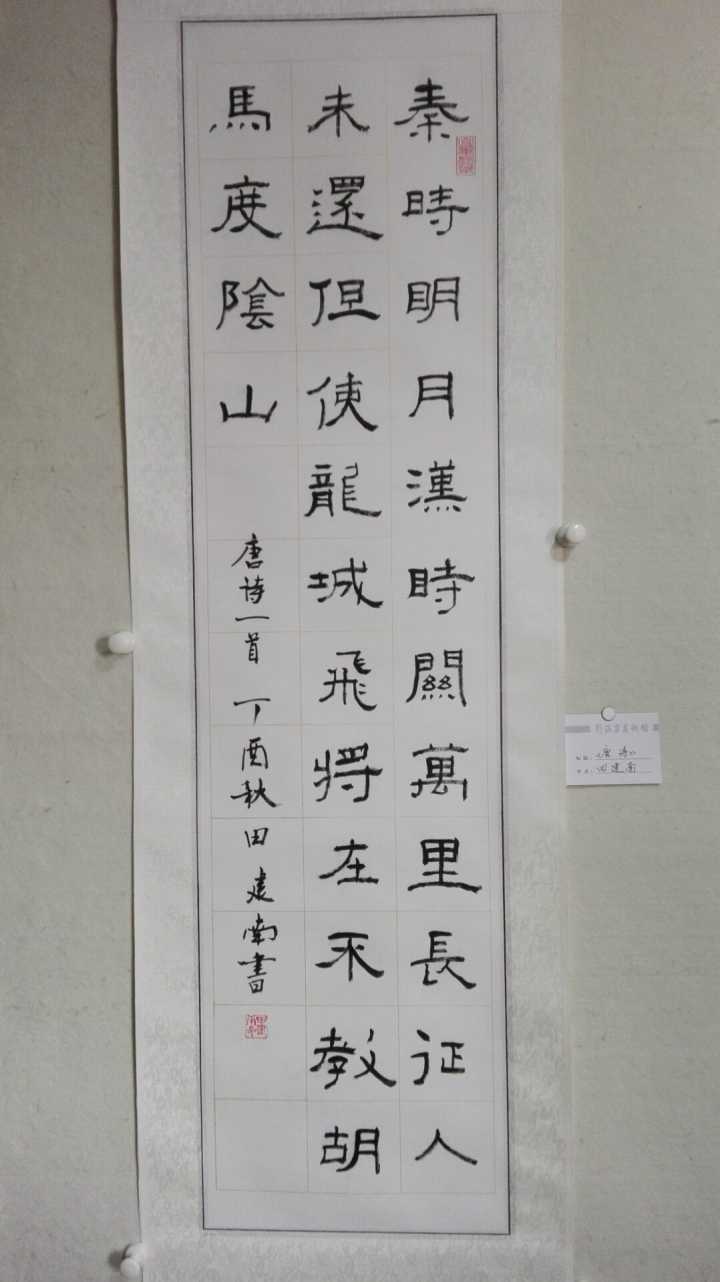 秦時明月漢時關萬里長征人
未還但使龍城飛將在不教胡
馬度陰山
唐诗一首 丁酉秋田建南書
田建南